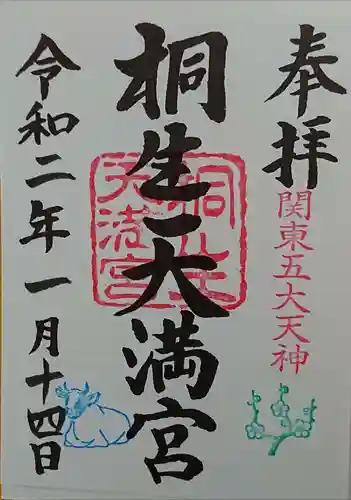 奉拝
関東五大天神
桐生天満宮
桐生天満宮
令和二年一月十四日